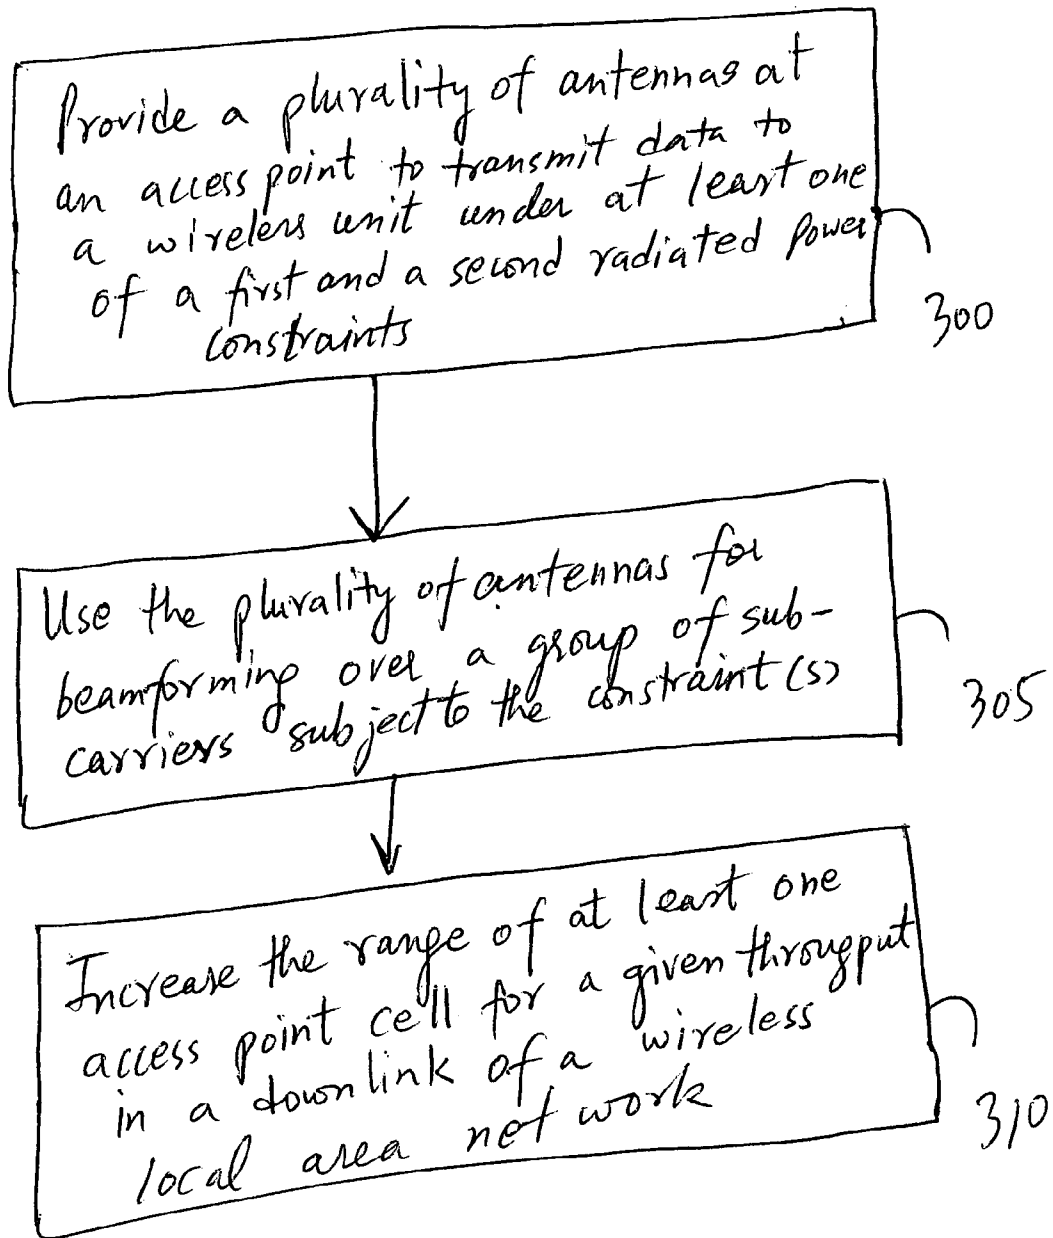 Provide a plurality of antennas at
an access point to transmit data to
a wireless unit under at least one
of a first and a second radiated power
constraints
300
Use the plurality of antennas for
beamforming over a group of sub-
carriers subject to the constraint(s)
305
Increase the range of at least one
access point cell for a given througput
in a downlink of a wireless
local area network
310